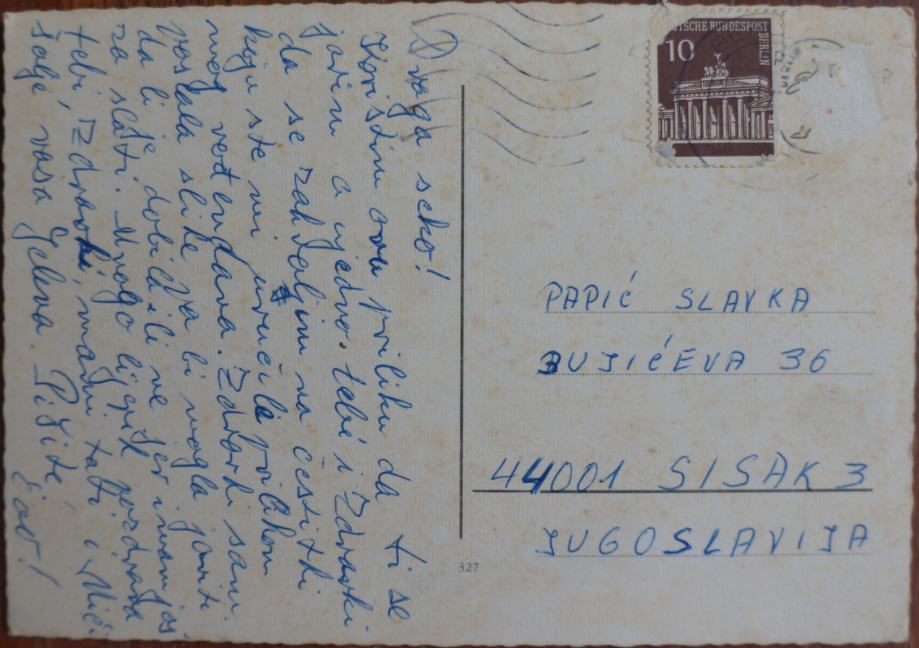 Draga seko!
Koristim ovu priliku da ti se
javim a ujedno tebi i Zdravki
da se zahvaljim na čestitki
koju ste mi uručila prilikom
mog rođendana. Zdravki sam
poslala slike pa bi mogla javiti
da li je dobila ili ne jer imam još
za slati. Mnogo lijepih pozdrava
tebi, Zdravki, mami tati i Mići
šalje vaša Jelena. Pišite!
Ćao!
DEUTSCHE BUNDESPOST
BERLIN
10
PAPIĆ SLAVKA
BUJIĆEVA 36
44001 SISAK 3
JUGOSLAVIJA
327